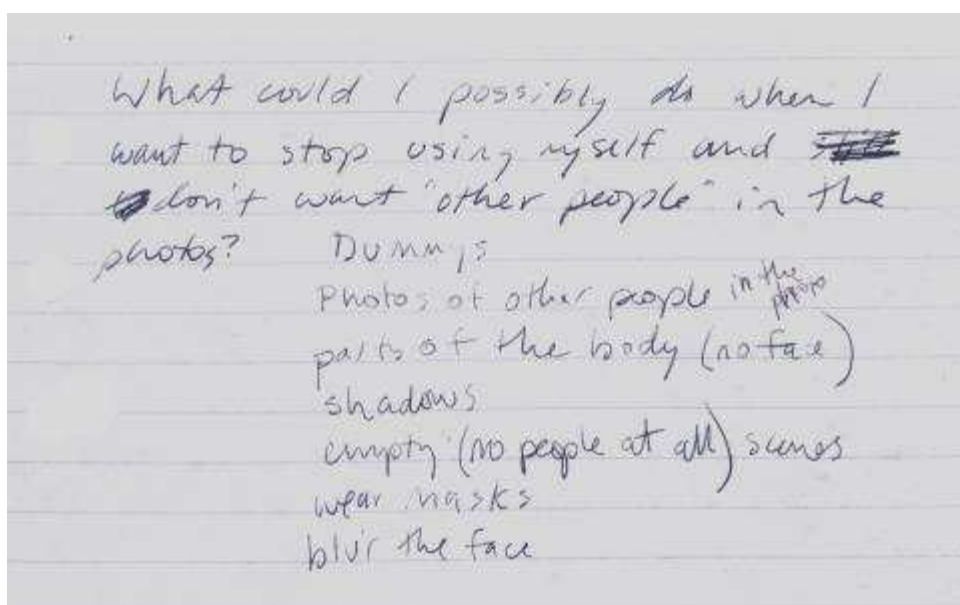 What could I possibly do when I
want to stop using myself and
don't want "other people" in the
photos? Dummys
Photos of other people in the photo
parts of the body (no face)
shadows
empty (no people at all) scenes
wear masks
blur the face